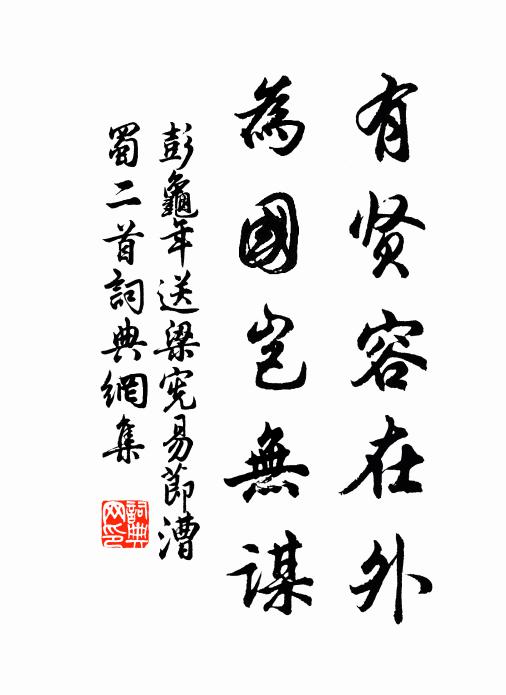 有贤容在外
為國豈無謀
彭龜年送梁宪易節漕
蜀二首詞典網集
詞典
网印